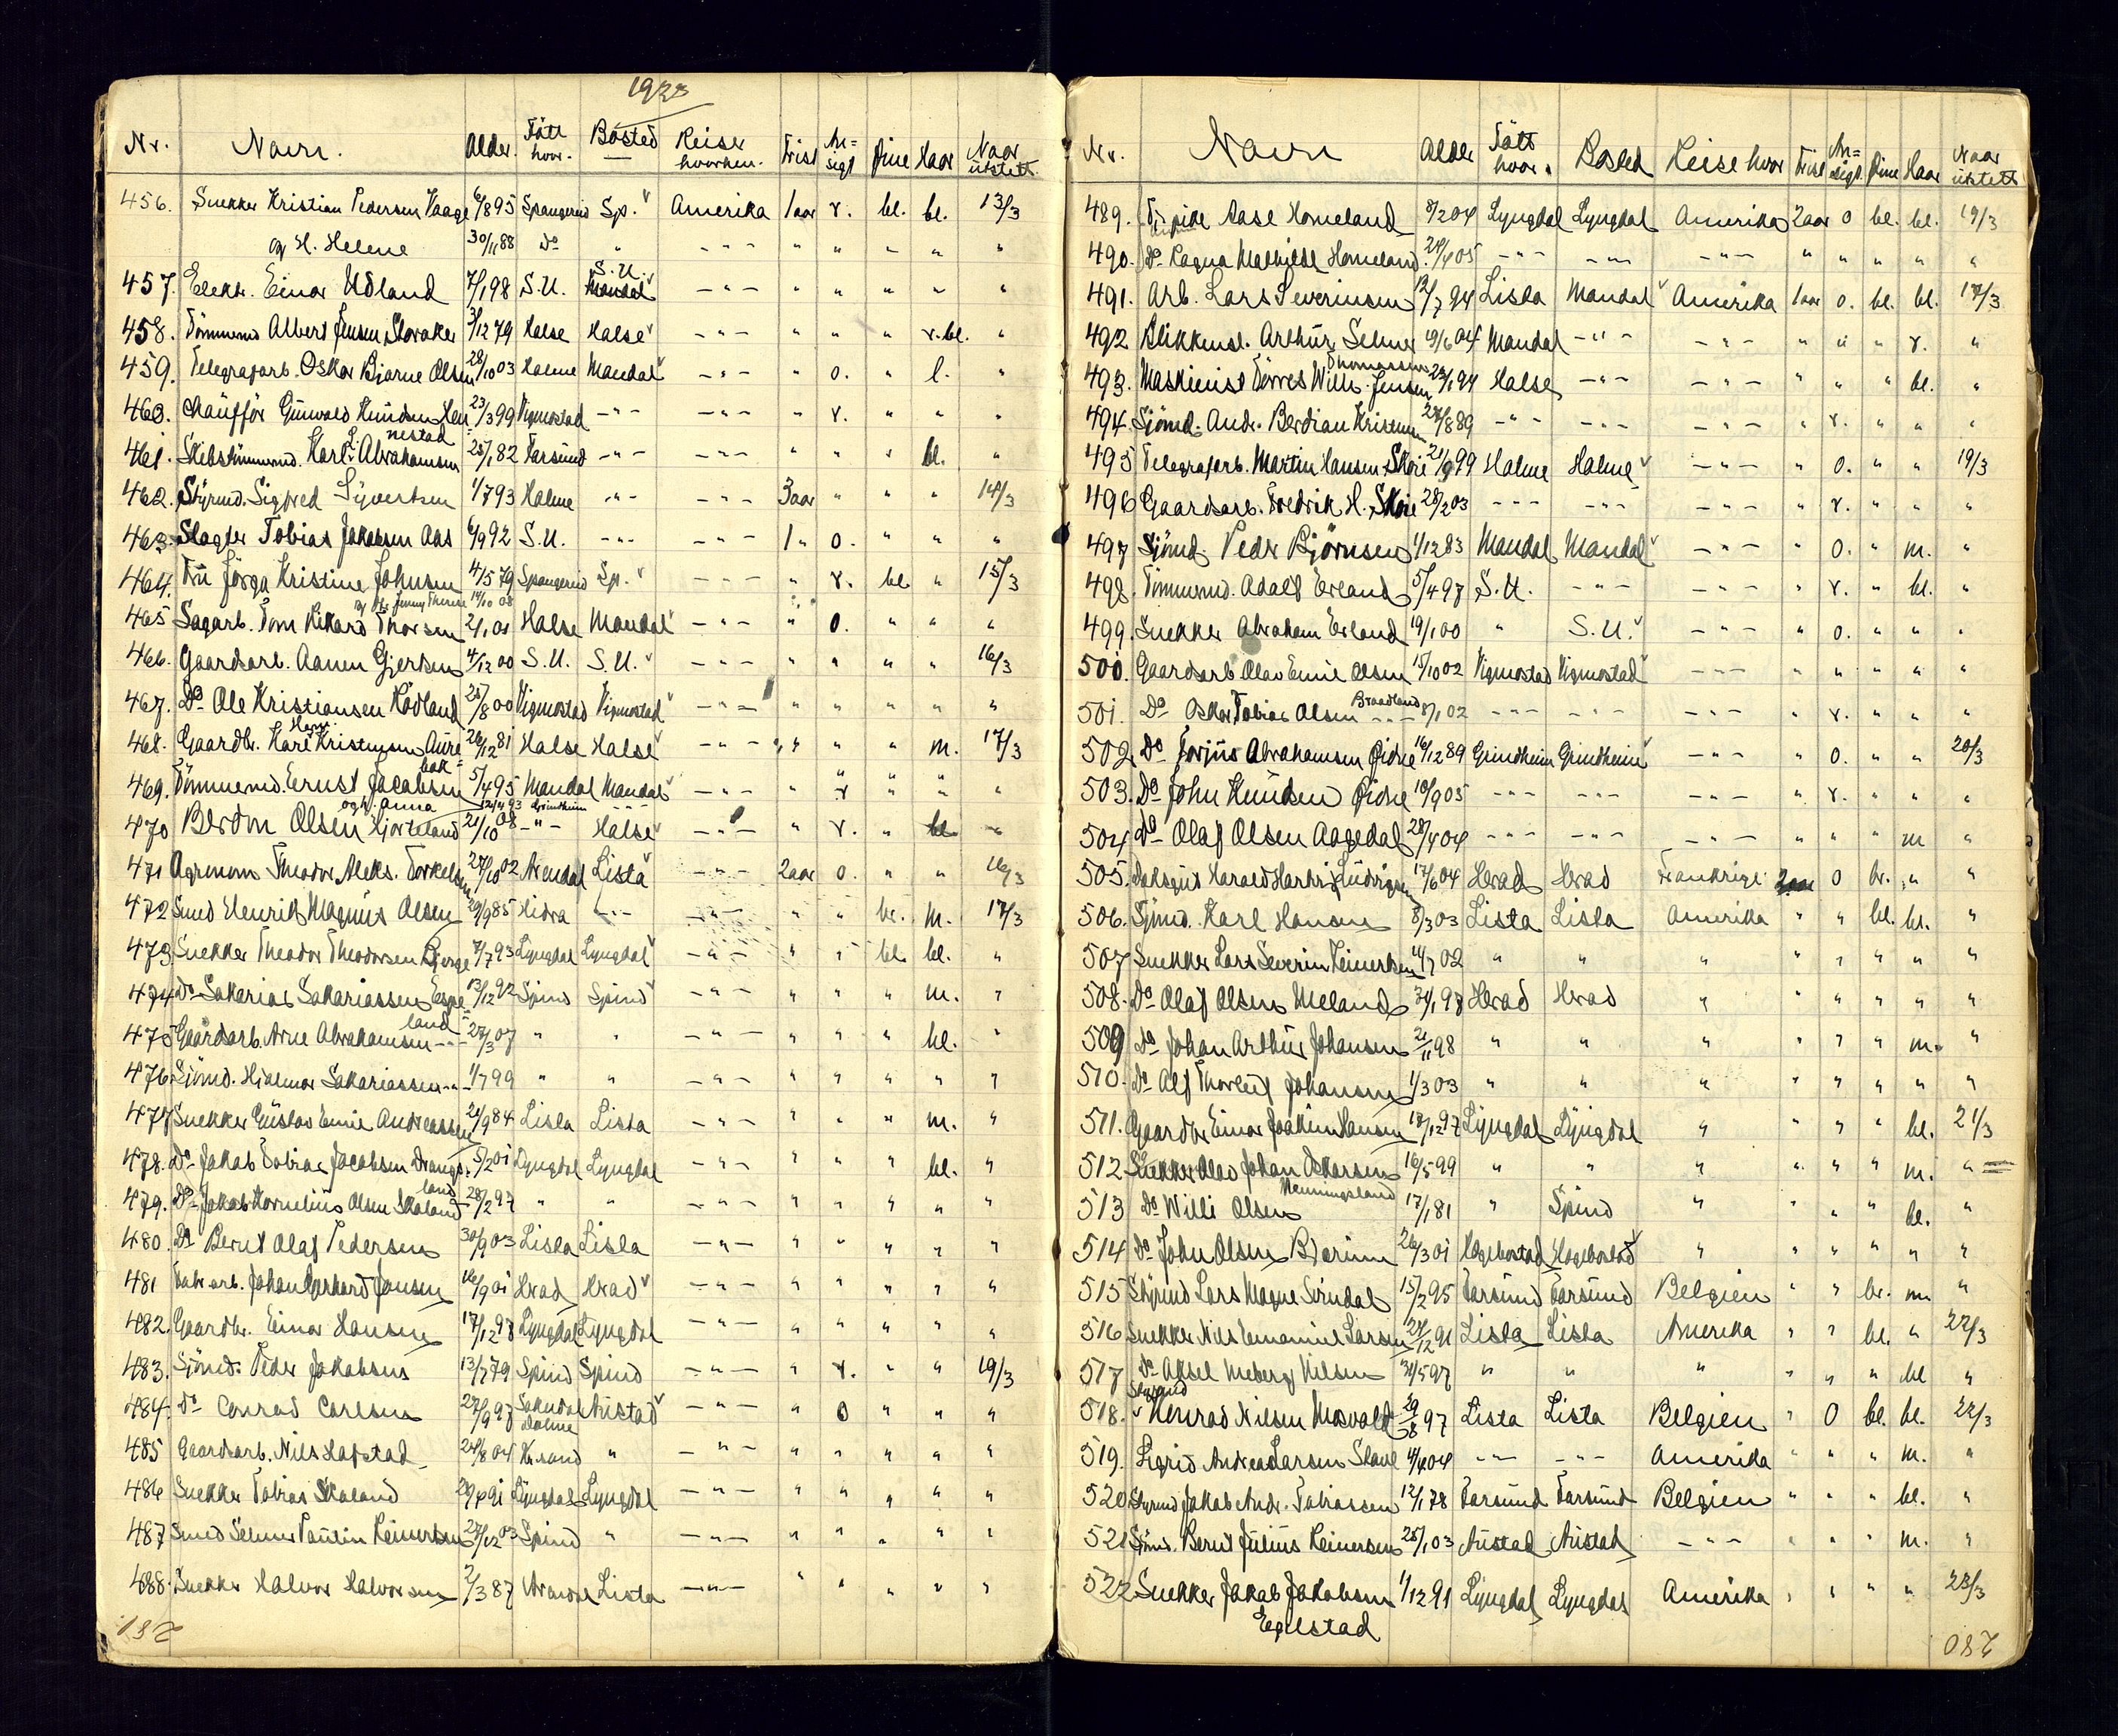 1923
Nr. Navn. Alder. Fött hvor. Bosted Reise hvorhen. Frist An=sigt Öine Haar Naar utstett.
456. Snekker Kristian Pedersen Vaage 6/8 95 Spangerid Sp. Amerika 1 aar r. bl. bl. 13/3
og H. Helene 30/11 88 Do " - " - " " " " "
457. Elektr. Einar Udland 7/1 98 S.U. S.U. - " - " " " " "
458. Tömmermd. Albert Jensen Storaker 3/12 79 Halse Halse - " - " " " r.bl. "
459. Telegrafarb. Oskar Bjarne Olsen 28/10 03 Halme Mandal - " - " o. " l. "
460. Chaufför Gunvald Knudsen Hen= 23/3 99 Vigmostad - " - - " - " r. " " "
nestad
461. Skibstömmermd. Karl L. Abrahamsen 25/1 82 Farsund - " - - " - " " " bl. "
462. Styrmd. Sigfred Syvertsen 1/7 93 Halme - " - - " - 3 aar " " " 14/3
463. Slagter Tobias Jakobsen Aas 6/9 92 S.U. - " - - " - 1 " o. " " "
464. Fru Jörga Kristine Johnsen 4/5 79 Spangerid Sp. - " - " r. bl. " 15/3
Jenny Therese 14/10 08
465 Sagarb. Tom Rikard Thorsen 2/1 01 Halse Mandal - " - " o. " " "
466. Gaardsarb. Aanen Gjertsen 4/12 00 S.U. S.U. - " - " " " " 16/3
467. Do Ole Kristiansen Rödland 25/8 00 Vigmostad Vigmostad - " - " " " " "
468. Gaardbr. Karl Hans Kristensen Aure= 26/12 81 Halse Halse - " - " " " m. 17/3
bak
469. Tömmermd. Ernst Jacobsen 5/4 95 Mandal Mandal - " - " " " " "
og H. Anna 12/4 93 Grindheim - - - r
470 Berdon Olsen Hjorteland 21/10 08 - " - Halse - " - " r. " bl. "
471 Agronom Theodor Aleks. Torkelsen 27/10 02 Arendal Lista - " - 2 aar o. " " 16/3
472 Smed Henrik Magnus Olsen 29/9 85 Hidra - " - - " - " " br. m. 17/3
473 Snekker Theodor Theodorsen Bjerge 7/7 93 Lyngdal Lyngdal - " - " " bl. bl. "
474 Do Sakarias Sakariassen Espe= 13/12 92 Spind Spind - " - " " " m. "
land
475 Gaardsarb. Arne Abrahamsen - " - 27/3 07 " " - " - " " " bl. "
476 Sjömd. Hjalmar Sakariassen - " - 1/7 99 " " - " - " " " " "
477 Snekker Gustav Emil Andreassen 21/9 84 Lista Lista - " - " " " m. "
478. Do Jakob Tobias Jacobsen Drangs= 5/2 01 Lyngdal Lyngdal - " - " " " bl. "
land
479. Do Jakob Kornelius Olsen Skaland 28/2 97 " " - " - " " " " "
480. Do Bernt Olaf Pedersen 30/9 03 Lista Lista - " - " " " " "
481 Fabr.arb. Johan Gerhard Jensen 16/9 01 Herad Herad - " - " " " " "
482. Gaardbr. Einar Hansen 17/12 97 Lyngdal Lyngdal - " - " " " " "
483. Sjömd. Peder Jakobsen 13/7 79 Spind Spind - " - " r. " " 19/3
484. Do Conrad Carlsen 27/9 97 Austad - " - " O " " "
485 Gaardsarb. Nils Hafstad 24/8 04 Kr.sand " - " - " " " " "
486 Snekker Tobias Skaland 29/4 91 Lyngdal Lyngdal - " - " " " " "
487 Smed Selmer Paulin Reinertsen 27/12 03 Spind " - " - " " " " "
488. Snekker Halvor Halvorsen 2/3 87 Arendal Lista - " - " " " " "
281.
Nr. Navn Alder Fött hvor. Bosted Reise hvor Frist An=sigt. Öine Haar Naar utstett
489. Aase Homeland 8/2 04 Lyngdal Lyngdal Amerika 2 aar o bl. bl. 19/3
490. Do Ragna Mathilde Homeland 24/4 05 - " - - " - - " - " " " " "
491. Arb. Lars Severinsen 12/7 94 Lista Mandal Amerika 1 aar o. bl. bl. 17/3
492 Blikkensl. Arthur Selmer 19/6 04 Mandal - " - - " - " " " r. "
493. Maskinist Törres Wilh. Jensen Thomassen 23/1 94 Halse - " - - " - " " " bl. "
494. Sjömd. Andr. Berdian Kristensen 27/8 89 - " - - " - - " - " r. " " "
495 Telegrafarb. Martin Hansen Skoie 21/9 99 Halme Halme - " - " o. " " 19/3
496 Gaardsarb. Fredrik H. Skoie 28/2 03 - " - - " - - " - " r. " " "
497 Sjömd. Peder Björnsen 1/12 83 Mandal Mandal - " - " o. " m. "
498. Tömmermd. Adolf Erland 5/4 97 S.U. - " - - " - " r. " bl. "
499. Snekker Abraham Erland 19/1 00 " S.U. - " - " o. " " "
500. Gaardsarb Olav Emil Olsen 15/10 02 Vigmostad Vigmostad - " - " " " " "
501. Do Oskar Tobias Olsen Braadland 8/1 02 - " - - " - - " - " r. " " "
502. Do Torjus Abrahamsen Öidne 16/12 89 Grindheim Grindheim - " - " o. " " 20/3
503. Do John Knudsen Öidne 10/9 05 - " - - " - - " - " r. " " "
504 Do Olaf Olsen Aagedal 28/4 04 - " - - " - - " - " " " m "
505. Harald Ludvigsen 17/6 04 Herad Herad Frankrige 2 aar o br. " "
506. Sjömd. Karl Hansen 8/3 03 Lista Lista Amerika " " bl. bl. "
507 Snekker Lars Severin Reinertsen 14/7 02 " " " " " " " "
508. Do Olaf Olsen Meland 31/1 97 Herad Herad " " " " " "
509 Do Johan Arthur Johansen 21/11 98 " " " " " " m. "
510. Do Alf Thorleif Johansen 1/3 03 " " " " " " " "
511. Gaardbr Einar Joakim Hansen 18/12 97 Lyngdal Lyngdal " " " " bl. 21/3
512 Snekker Olav Johan Oskarsen 16/5 99 " " " " " " m. "
513 Do Willi Olsen Henningsland 17/1 81 " Spind " " " " bl. "
514 Do John Olsen Bjerum 26/3 01 Hægebostad Hægebostad " " " " " "
515 Styrmd Lars Magne Sirndal 15/2 95 Farsund Farsund Belgien " " br. m "
516 Snekker Nils Emanuel Larsen 24/12 91 Lista Lista Amerika " " bl. " 22/3
517 Do Aksel Meberg Nilsen 31/5 97 " " " " " " bl "
518. Styrmd Konrad Nilsen Mosvold 29/8 97 Lista Lista Belgien " O bl. bl. 22/3
519. Sigrid Andrea Larsen Stave 4/4 04 - " - - " - Amerika " " " m. "
520 Styrmd Jakob Andr. Tobiassen 12/1 78 Farsund Farsund Belgien " " " bl. "
521 Sjömd. Bernt Julius Reinertsen 25/1 03 Austad Austad - " - " " " m. "
522 Snekker Jakob Jakobsen 1/12 91 Lyngdal Lyngdal Amerika " " " " 23/3
Egelstad
280